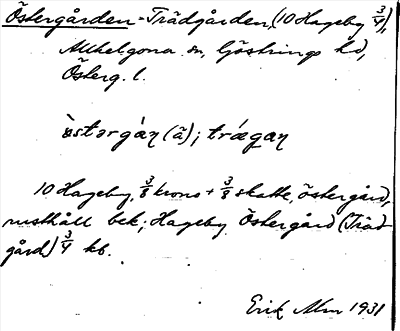 Östergården - Trädgården, (10 Hageby 3/4),
Allhelgona sn, Göstrings hd,
Österg. l.
östərgàn (ä); trǽgan
10 Hageby, 3/8 krono + 3/8 skatte, östergård,
rusthåll bek.; Hageby Östergård (Träd-
gård) 3/4 kb.
Erik Alm 1931